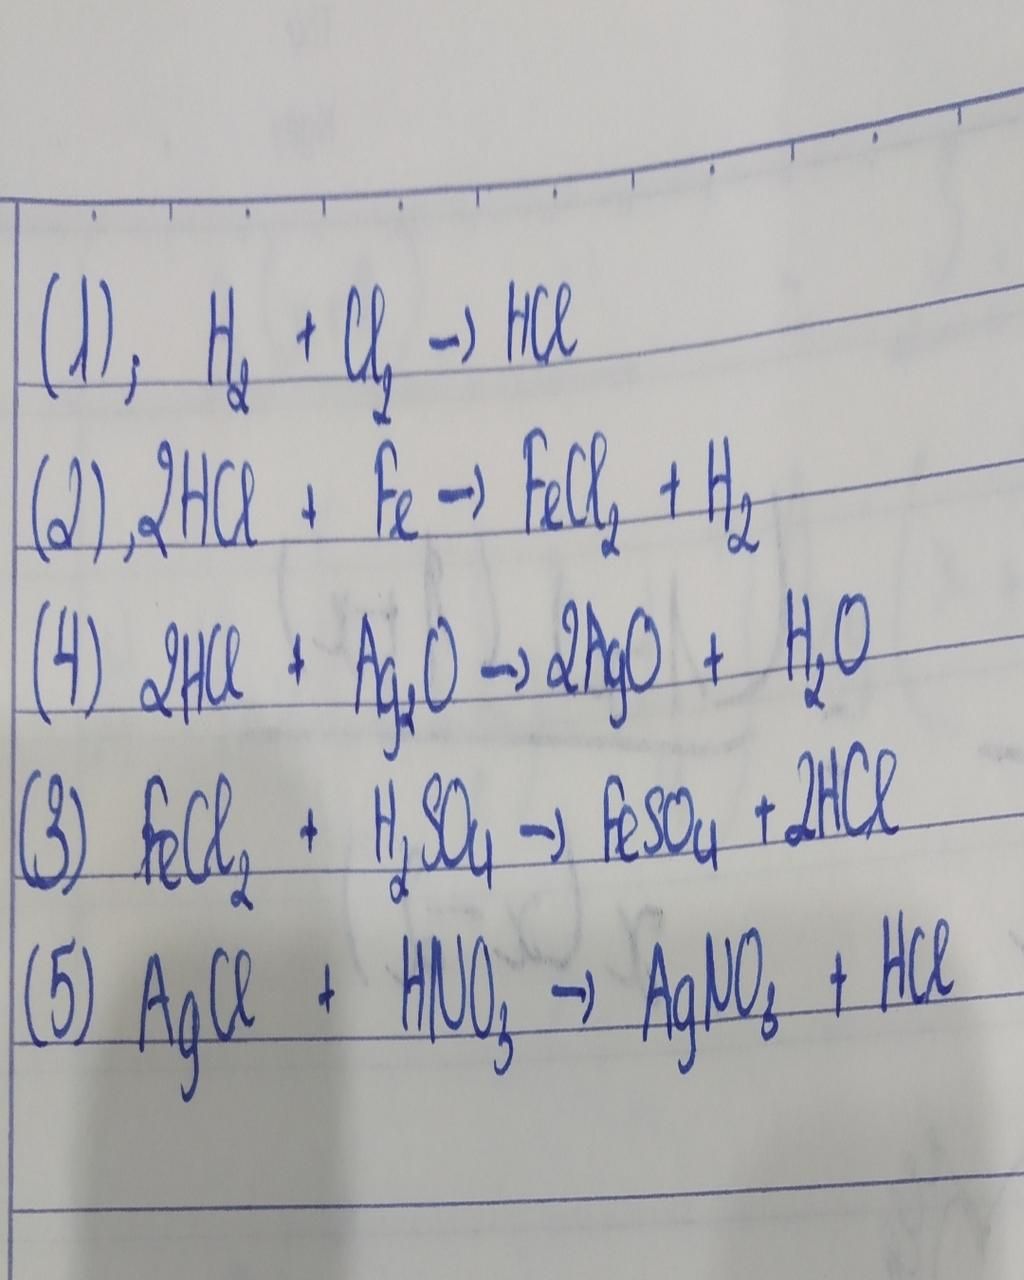 (1), H₂ + Cl₂ → HCl
(2), 2HCl + Fe → FeCl₂ + H₂
(4) 2HCl + Ag₂O → 2AgO + H₂O
(3) FeCl₂ + H₂SO₄ → FeSO₄ + 2HCl
(5) AgCl + HNO₃ → AgNO₃ + HCl